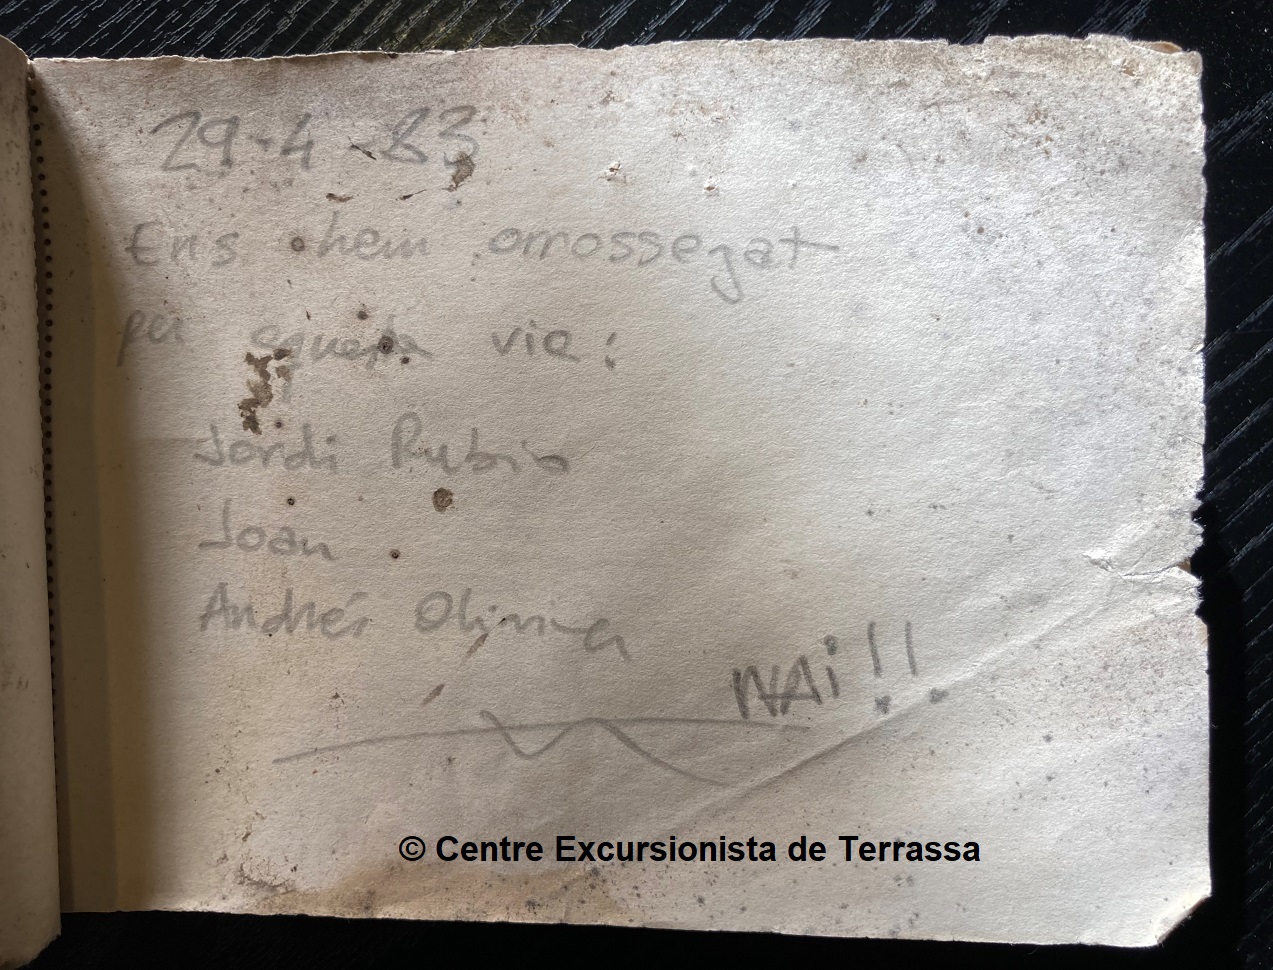 29-4-83
Ens hem orrossegat
per aquesta via:
Jordi Rubio
Joan
Andrés
NAi!!
© Centre Excursionista de Terrassa